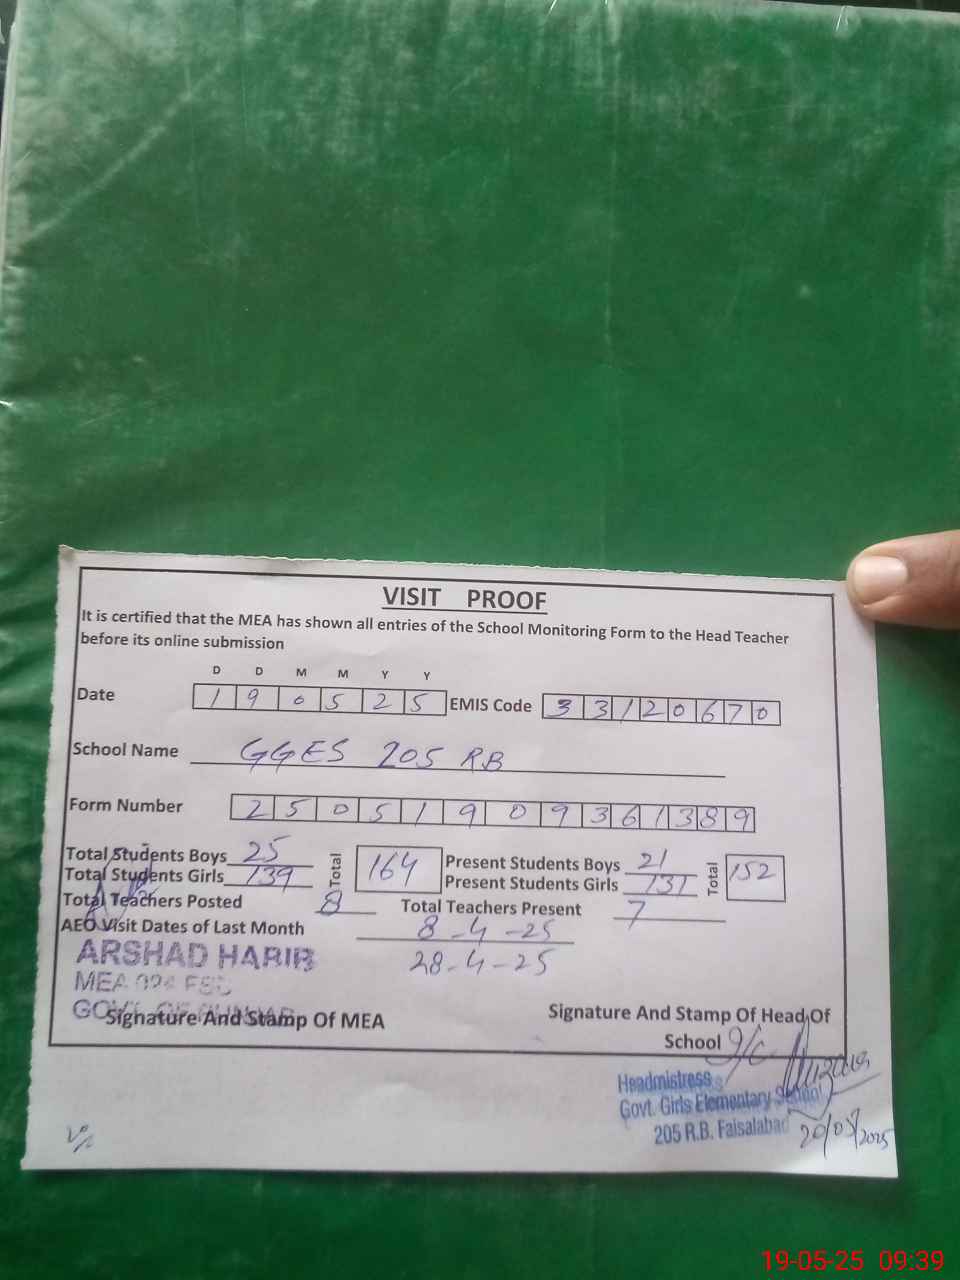 VISIT PROOF
It is certified that the MEA has shown all entries of the School Monitoring Form to the Head Teacher
before its online submission
D D M M Y Y
Date 1 9 0 5 2 5 EMIS Code 3 3 1 2 0 6 7 0
School Name GGES 205 RB
Form Number 2 5 0 5 1 9 0 9 3 6 1 3 8 9
Total Students Boys 25 Total 164 Present Students Boys 21 Total 152
Total Students Girls 139 Present Students Girls 131
Total Teachers Posted 8 Total Teachers Present 7
AEO Visit Dates of Last Month 8-4-25
28-4-25
ARSHAD HABIB
MEA 024 FSD
GOVT. OF PUNJAB
Signature And Stamp Of MEA
Signature And Stamp Of Head Of
School I/C
Headmistress
Govt. Girls Elementary School
205 R.B. Faisalabad
20/05/2025
19-05-25 09:39